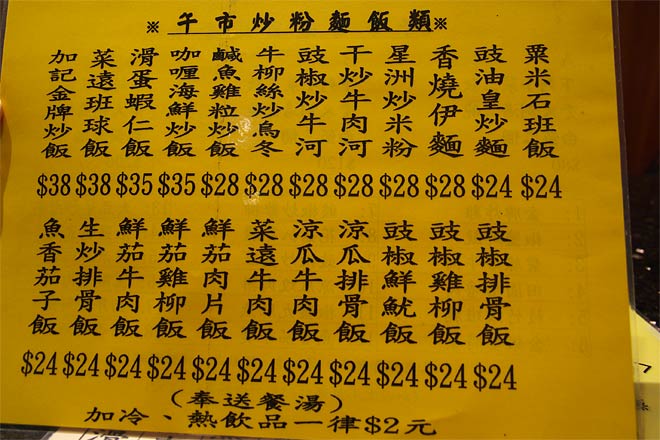 ※ 午市炒粉麵飯類 ※
粟米石班飯
豉油皇炒麵
香燒伊麵
星洲炒米粉
干炒牛肉河
豉椒炒牛河
牛柳絲炒烏冬
鹹魚雞粒炒飯
咖喱海鮮炒飯
滑蛋蝦仁飯
菜遠班球飯
加記金牌炒飯
$38 $38 $35 $35 $28 $28 $28 $28 $28 $28 $24 $24
豉椒排骨飯
豉椒雞柳飯
豉椒鮮魷飯
涼瓜排骨飯
涼瓜牛肉飯
菜遠牛肉飯
鮮茄肉片飯
鮮茄雞柳飯
鮮茄牛肉飯
生炒排骨飯
魚香茄子飯
$24 $24 $24 $24 $24 $24 $24 $24 $24 $24 $24
（奉送餐湯）
加冷、熱飲品一律$2元